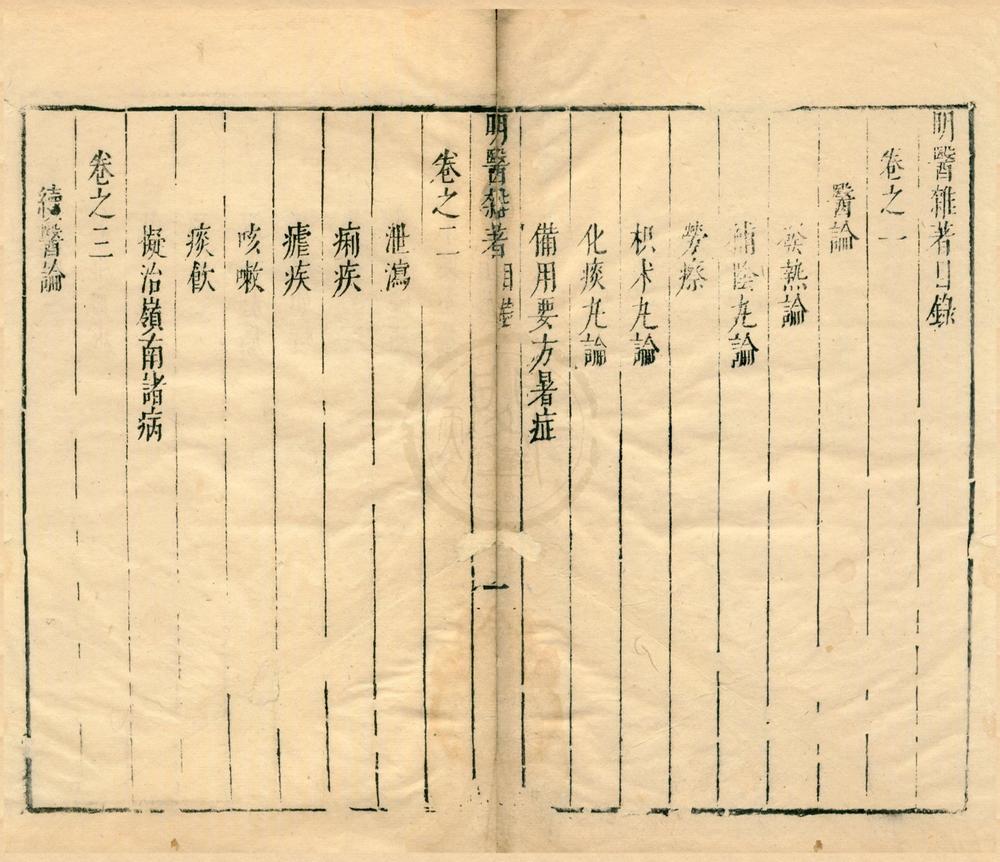 明醫雜著目錄
卷之一
醫論
發熱論
補陰丸論
勞瘵
枳术丸論
化痰丸論
備用要方暑症
明醫雜著 目錄 一
卷之二
泄瀉
痢疾
瘧疾
咳嗽
痰飲
擬治嶺南諸病
卷之三
續醫論